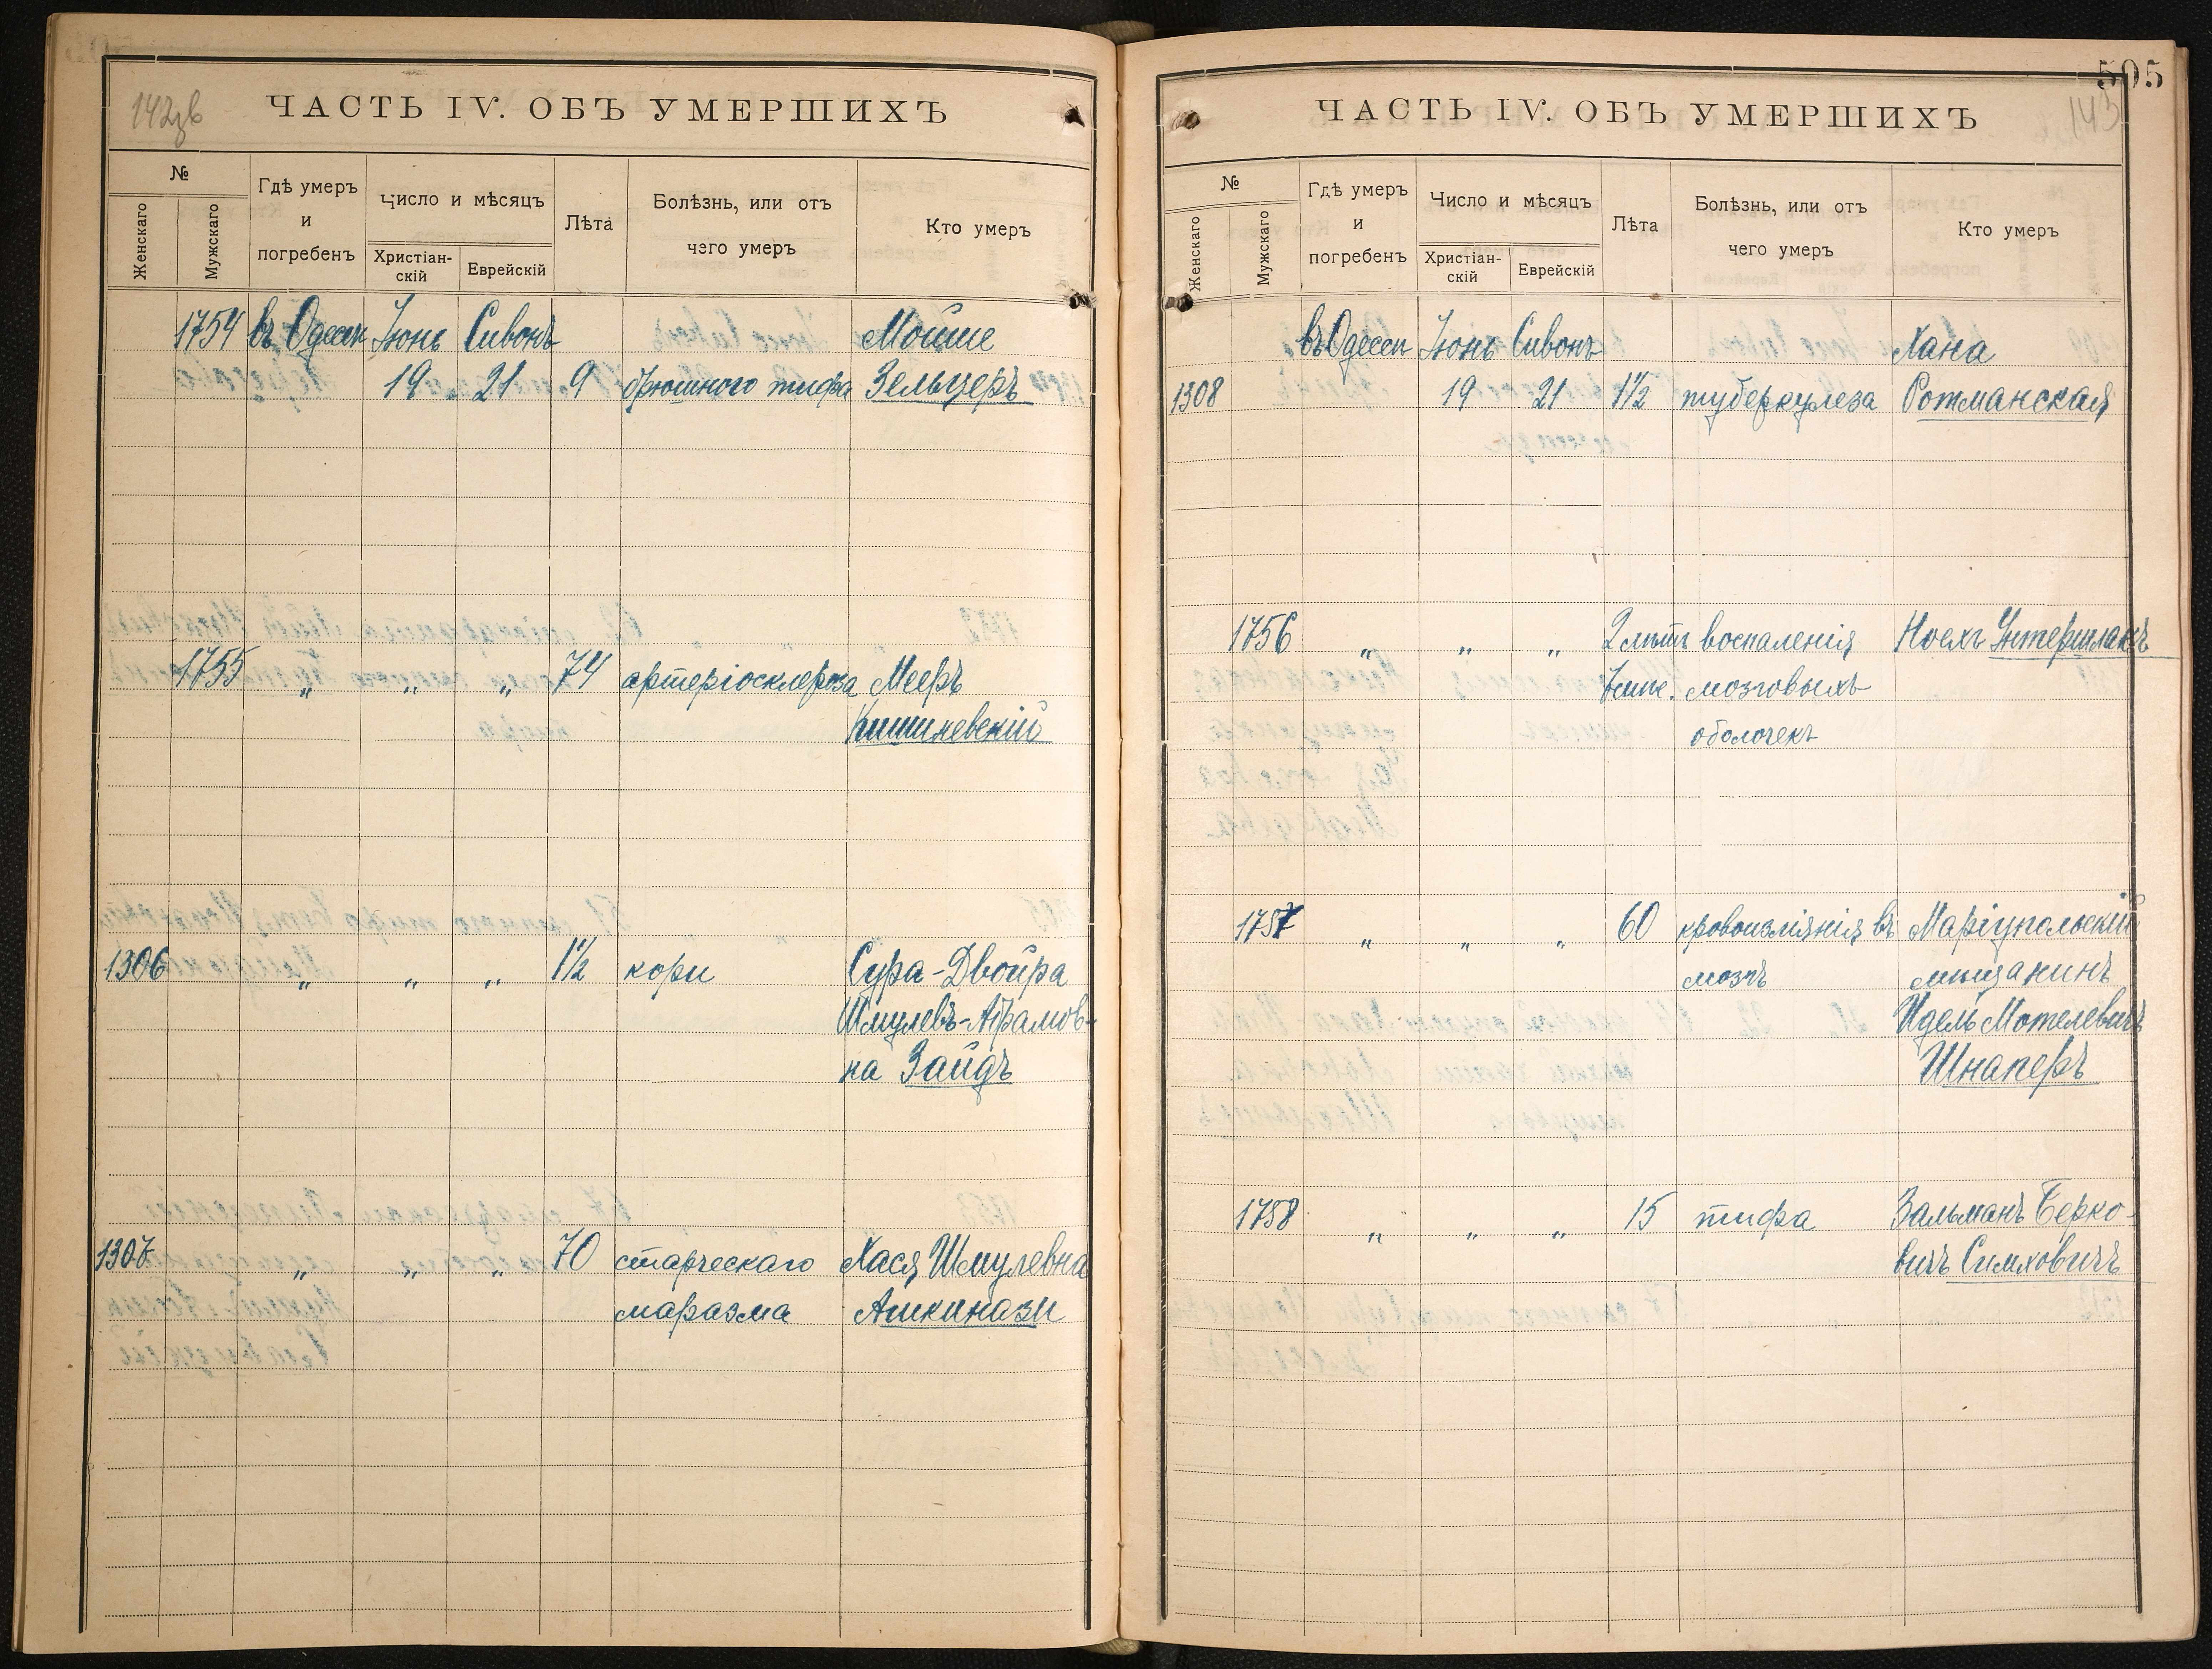 142зв
ЧАСТЬ IV. ОБЪ УМЕРШИХЪ
№
Женскаго
Мужскаго
Гдѣ умеръ
и
погребенъ
Число и мѣсяцъ
Христіан-
скій
Еврейскій
Лѣта
Болѣзнь, или отъ
чего умеръ
Кто умеръ
1754 въ Одессѣ Іюнь Сивонъ Мойше
19 21 9 брюшного тифа Зельцеръ
1755 „ „ „ 74 артеріосклероза Мееръ
Кишиневскій
1306 „ „ „ 1½ кори Сура-Двойра
Шмулевъ-Абрамов-
на Зайдъ
1307 „ „ „ 70 старческаго Хася Шмулевна
маразма Ашкинази
505
143
ЧАСТЬ IV. ОБЪ УМЕРШИХЪ
№
Женскаго
Мужскаго
Гдѣ умеръ
и
погребенъ
Число и мѣсяцъ
Христіан-
скій
Еврейскій
Лѣта
Болѣзнь, или отъ
чего умеръ
Кто умеръ
въ Одессѣ Іюнь Сивонъ Хана
1308 19 21 1½ туберкулеза Ротманская
1756 „ „ „ 2 лѣтъ воспаленія Ноехъ Унтершлакъ
мозговыхъ
оболочекъ
1757 „ „ „ 60 кровоизліянія въ Маріупольскій
мозгъ мѣщанинъ
Идель Мотелевичъ
Шнаперъ
1758 „ „ „ 15 тифа Зальманъ Берко-
вичъ Симховичъ